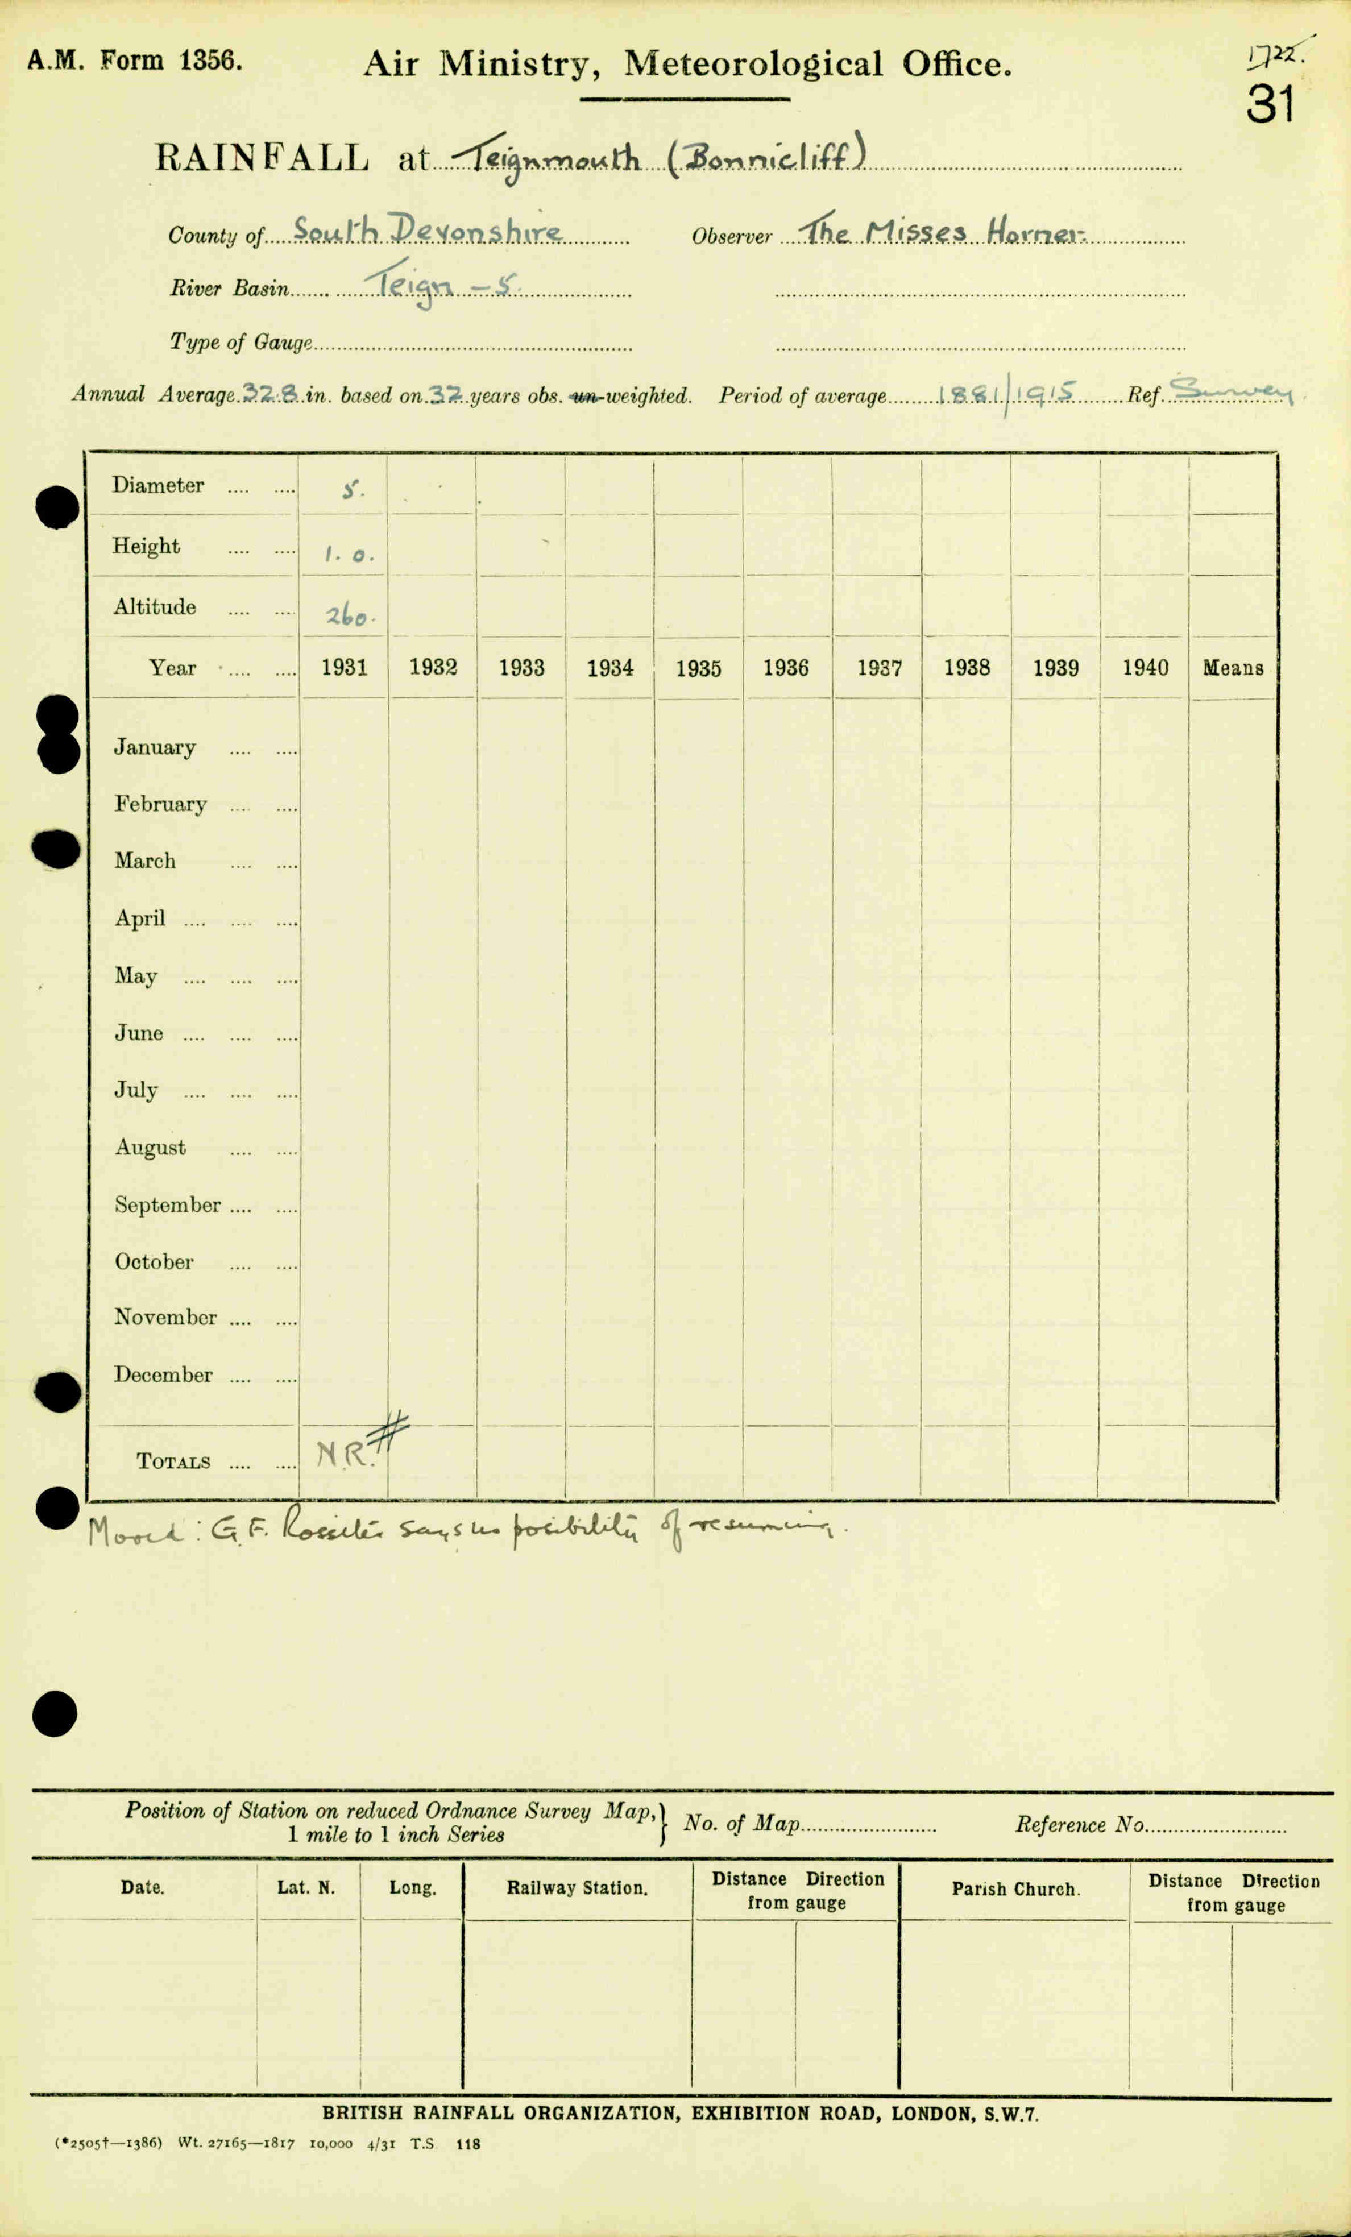 A.M. Form 1356.
Air Ministry, Meteorological Office.
1722.
31
RAINFALL at Teignmouth (Bonnicliff)
County of South Devonshire Observer The Misses Horner.
River Basin Teign - 5.
Type of Gauge
Annual Average 32.8 in. based on 32 years obs. un-weighted. Period of average 1881/1915 Ref. Survey
Diameter .... .... 5.
Height .... .... 1. 0.
Altitude .... .... 260.
Year .... .... 1931 1932 1933 1934 1935 1936 1937 1938 1939 1940 Means
January .... ....
February .... ....
March .... ....
April .... .... ....
May .... .... ....
June .... .... ....
July .... .... ....
August .... ....
September .... ....
October .... ....
November .... ....
December .... ....
TOTALS .... .... N.R. #
Moved: G.F. Rossiter says no posibility of resuming.
Position of Station on reduced Ordnance Survey Map,} No. of Map Reference No.
1 mile to 1 inch Series
Date. Lat. N. Long. Railway Station. Distance Direction Parish Church. Distance Direction
from gauge from gauge
BRITISH RAINFALL ORGANIZATION, EXHIBITION ROAD, LONDON, S.W.7.
(*2505†—1386) Wt. 27165—1817 10,000 4/31 T.S 118